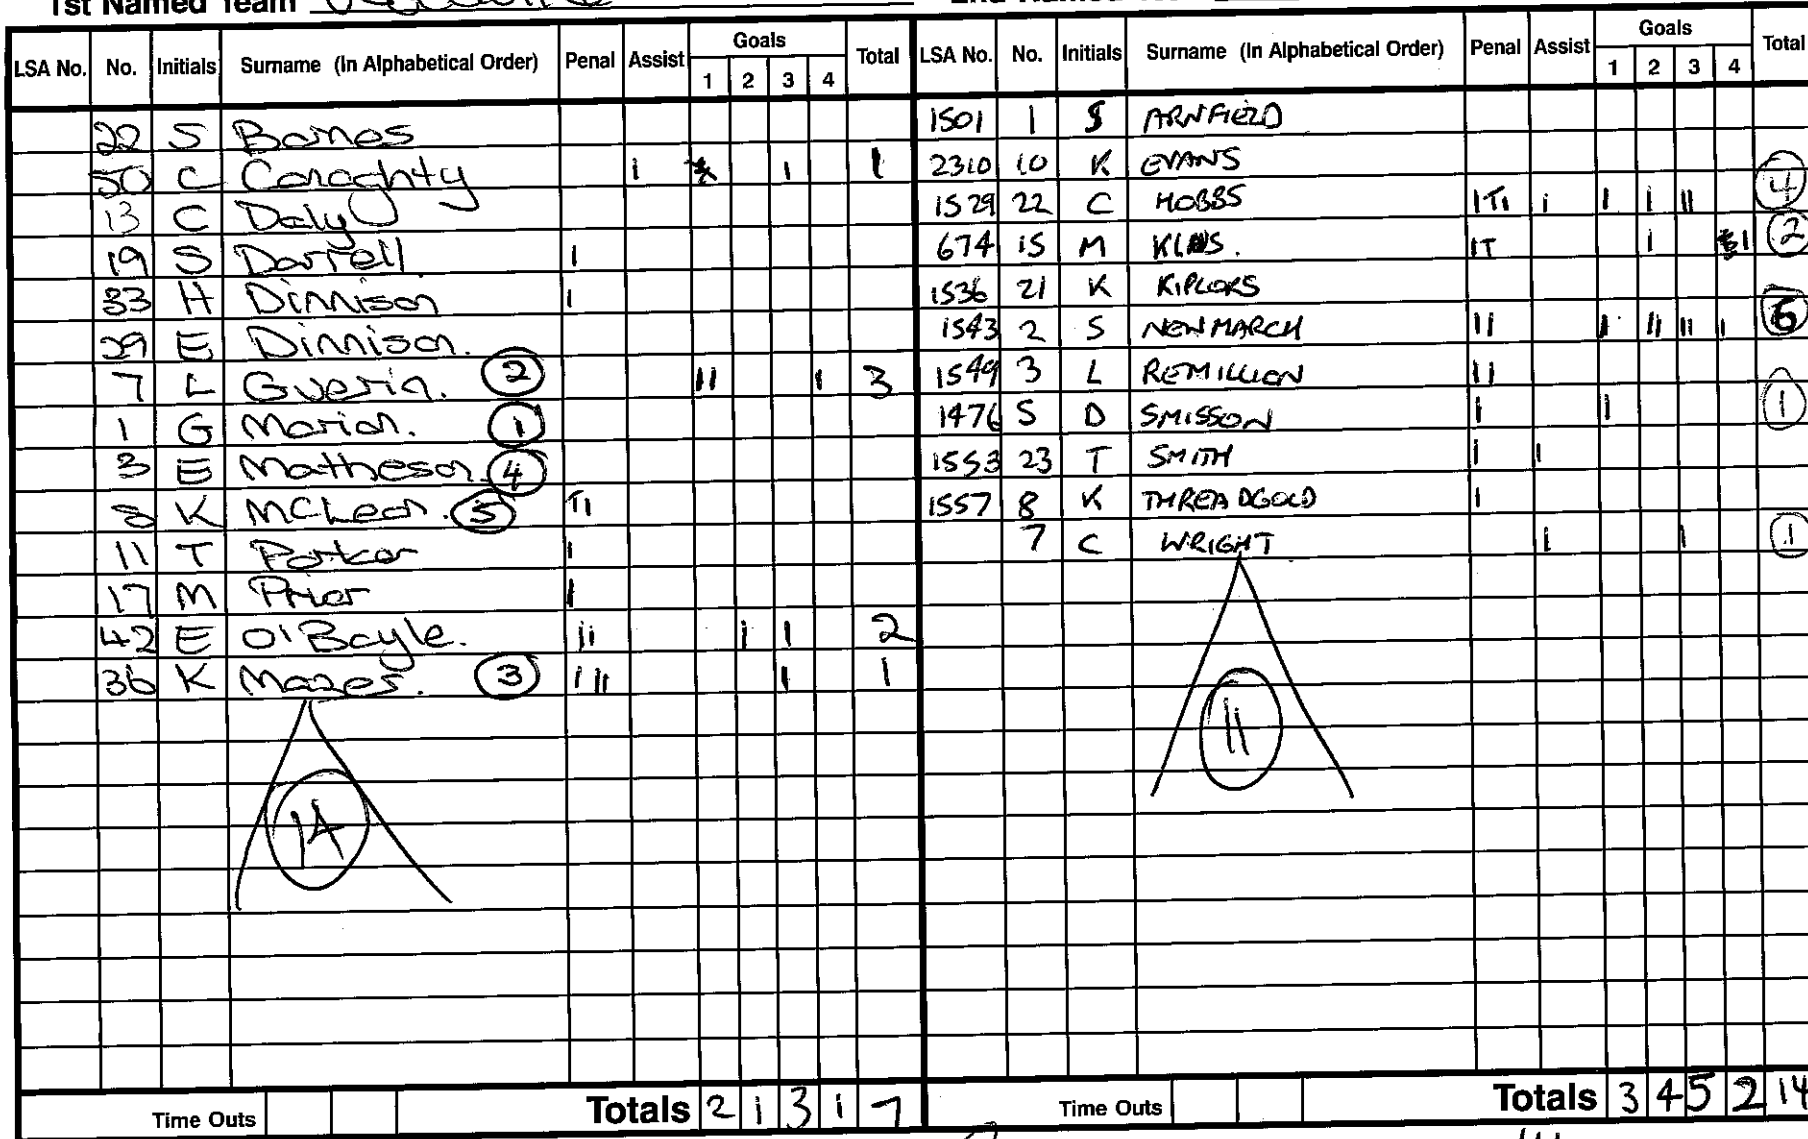 1st Named Team
LSA No. No. Initials Surname (In Alphabetical Order) Penal Assist Goals 1 2 3 4 Total
22 S Barnes
50 C Caraghty I I 1
13 C Daly
19 S Darrell I
33 H Dinnison I
29 E Dinnison.
7 L Guerin. 2 II I 3
1 G Marian. 1
3 E Matheson. 4
8 K McLean. 5 TI
11 T Parker I
17 M Prior I
42 E O'Boyle. II I I 2
36 K Mazes. 3 III I 1
14
Time Outs Totals 2 1 3 1 7
LSA No. No. Initials Surname (In Alphabetical Order) Penal Assist Goals 1 2 3 4 Total
1501 1 S ARNFIELD
2310 10 K EVANS
1529 22 C HOBBS ITI I I I II 4
674 15 M IT I I 2
1536 21 K KIPLOKS
1543 2 S NEWMARCH II I II II I 6
1549 3 L REMILLION II
1476 5 D SMISSON I I 1
1553 23 T SMITH I I
1557 8 K THREADGOLD I
7 C WRIGHT I I 1
11
Time Outs Totals 3 4 5 2 14